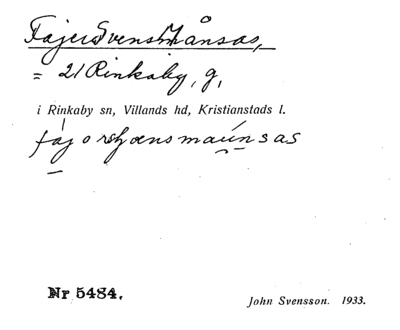 Fajer Svens Månsas,
= 21 Rinkaby, g,
i Rinkaby sn, Villands hd, Kristianstads l.
Nr 5484.
John Svensson. 1933.